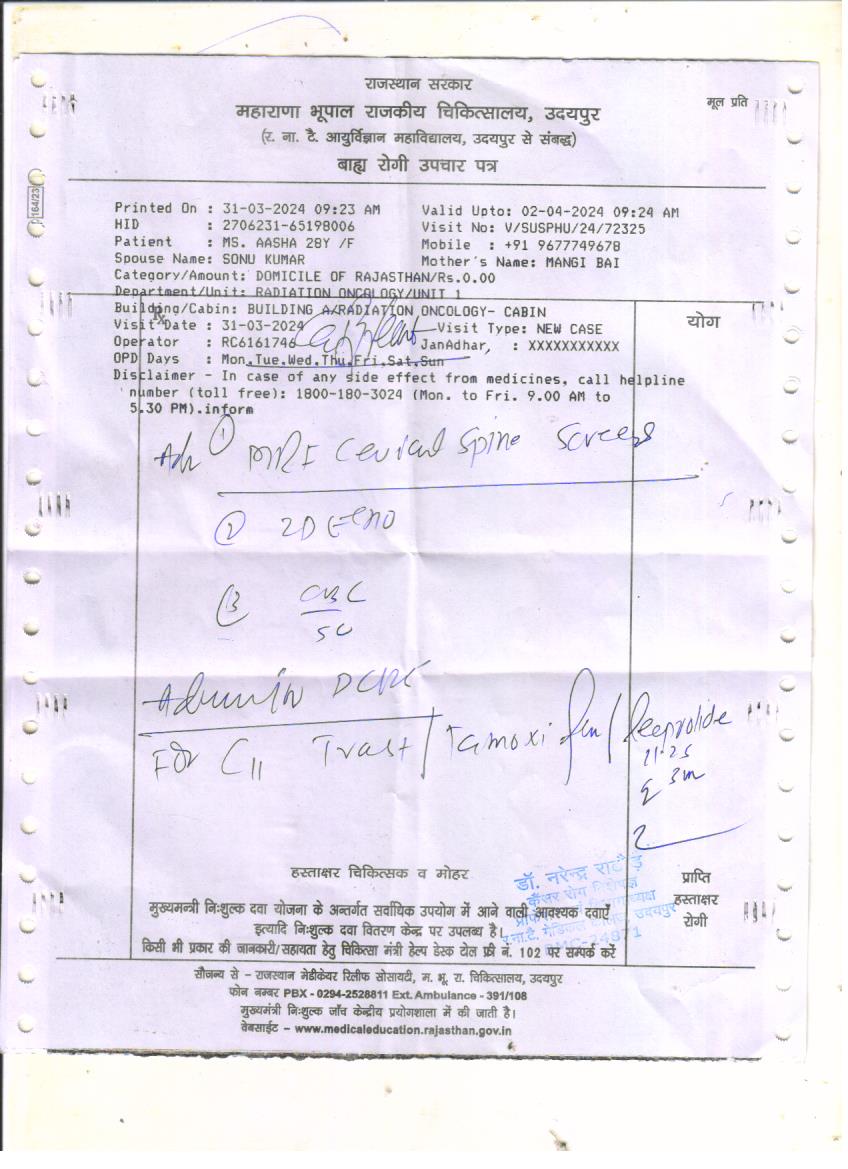 राजस्थान सरकार
महाराणा भूपाल राजकीय चिकित्सालय, उदयपुर
मूल प्रति
(र. ना. टै. आयुर्विज्ञान महाविद्यालय, उदयपुर से संबद्ध)
बाह्य रोगी उपचार पत्र
164/23
Printed On : 31-03-2024 09:23 AM Valid Upto: 02-04-2024 09:24 AM
HID : 2706231-65198006 Visit No: V/SUSPHU/24/72325
Patient : MS. AASHA 28Y /F Mobile : +91 9677749678
Spouse Name: SONU KUMAR Mother's Name: MANGI BAI
Category/Amount: DOMICILE OF RAJASTHAN/Rs.0.00
Department/Unit: RADIATION ONCOLOGY/UNIT 1
Building/Cabin: BUILDING A/RADIATION ONCOLOGY- CABIN
Rx
योग
Visit Date : 31-03-2024 Visit Type: NEW CASE
Operator : RC6161746 JanAdhar, : XXXXXXXXXXX
OPD Days : Mon,Tue,Wed,Thu,Fri,Sat,Sun
Disclaimer - In case of any side effect from medicines, call helpline
number (toll free): 1800-180-3024 (Mon. to Fri. 9.00 AM to
5.30 PM).inform
Adv ① MRI Cervical Spine Screen
② 2D Echo
③ CBC
Admit in
For C11 Trast / Tamoxifen / Leuprolide
11.25
q 3m
हस्ताक्षर चिकित्सक व मोहर
डॉ. नरेन्द्र राठौड़
कैंसर रोग विशेषज्ञ
र.ना.टै. मेडिकल कॉलेज, उदयपुर
प्राप्ति
हस्ताक्षर
रोगी
मुख्यमन्त्री निःशुल्क दवा योजना के अन्तर्गत सर्वाधिक उपयोग में आने वाली आवश्यक दवाएें
इत्यादि निःशुल्क दवा वितरण केन्द्र पर उपलब्ध है।
किसी भी प्रकार की जानकारी/सहायता हेतु चिकित्सा मंत्री हेल्प डेस्क टोल फ्री नं. 102 पर सम्पर्क करें
सौजन्य से - राजस्थान मेडीकेयर रिलीफ सोसायटी, म. भू. रा. चिकित्सालय, उदयपुर
फोन नम्बर PBX - 0294-2528811 Ext. Ambulance - 391/108
मुख्यमन्त्री निःशुल्क जाँच केन्द्रीय प्रयोगशाला में की जाती है।
वेबसाईट - www.medicaleducation.rajasthan.gov.in